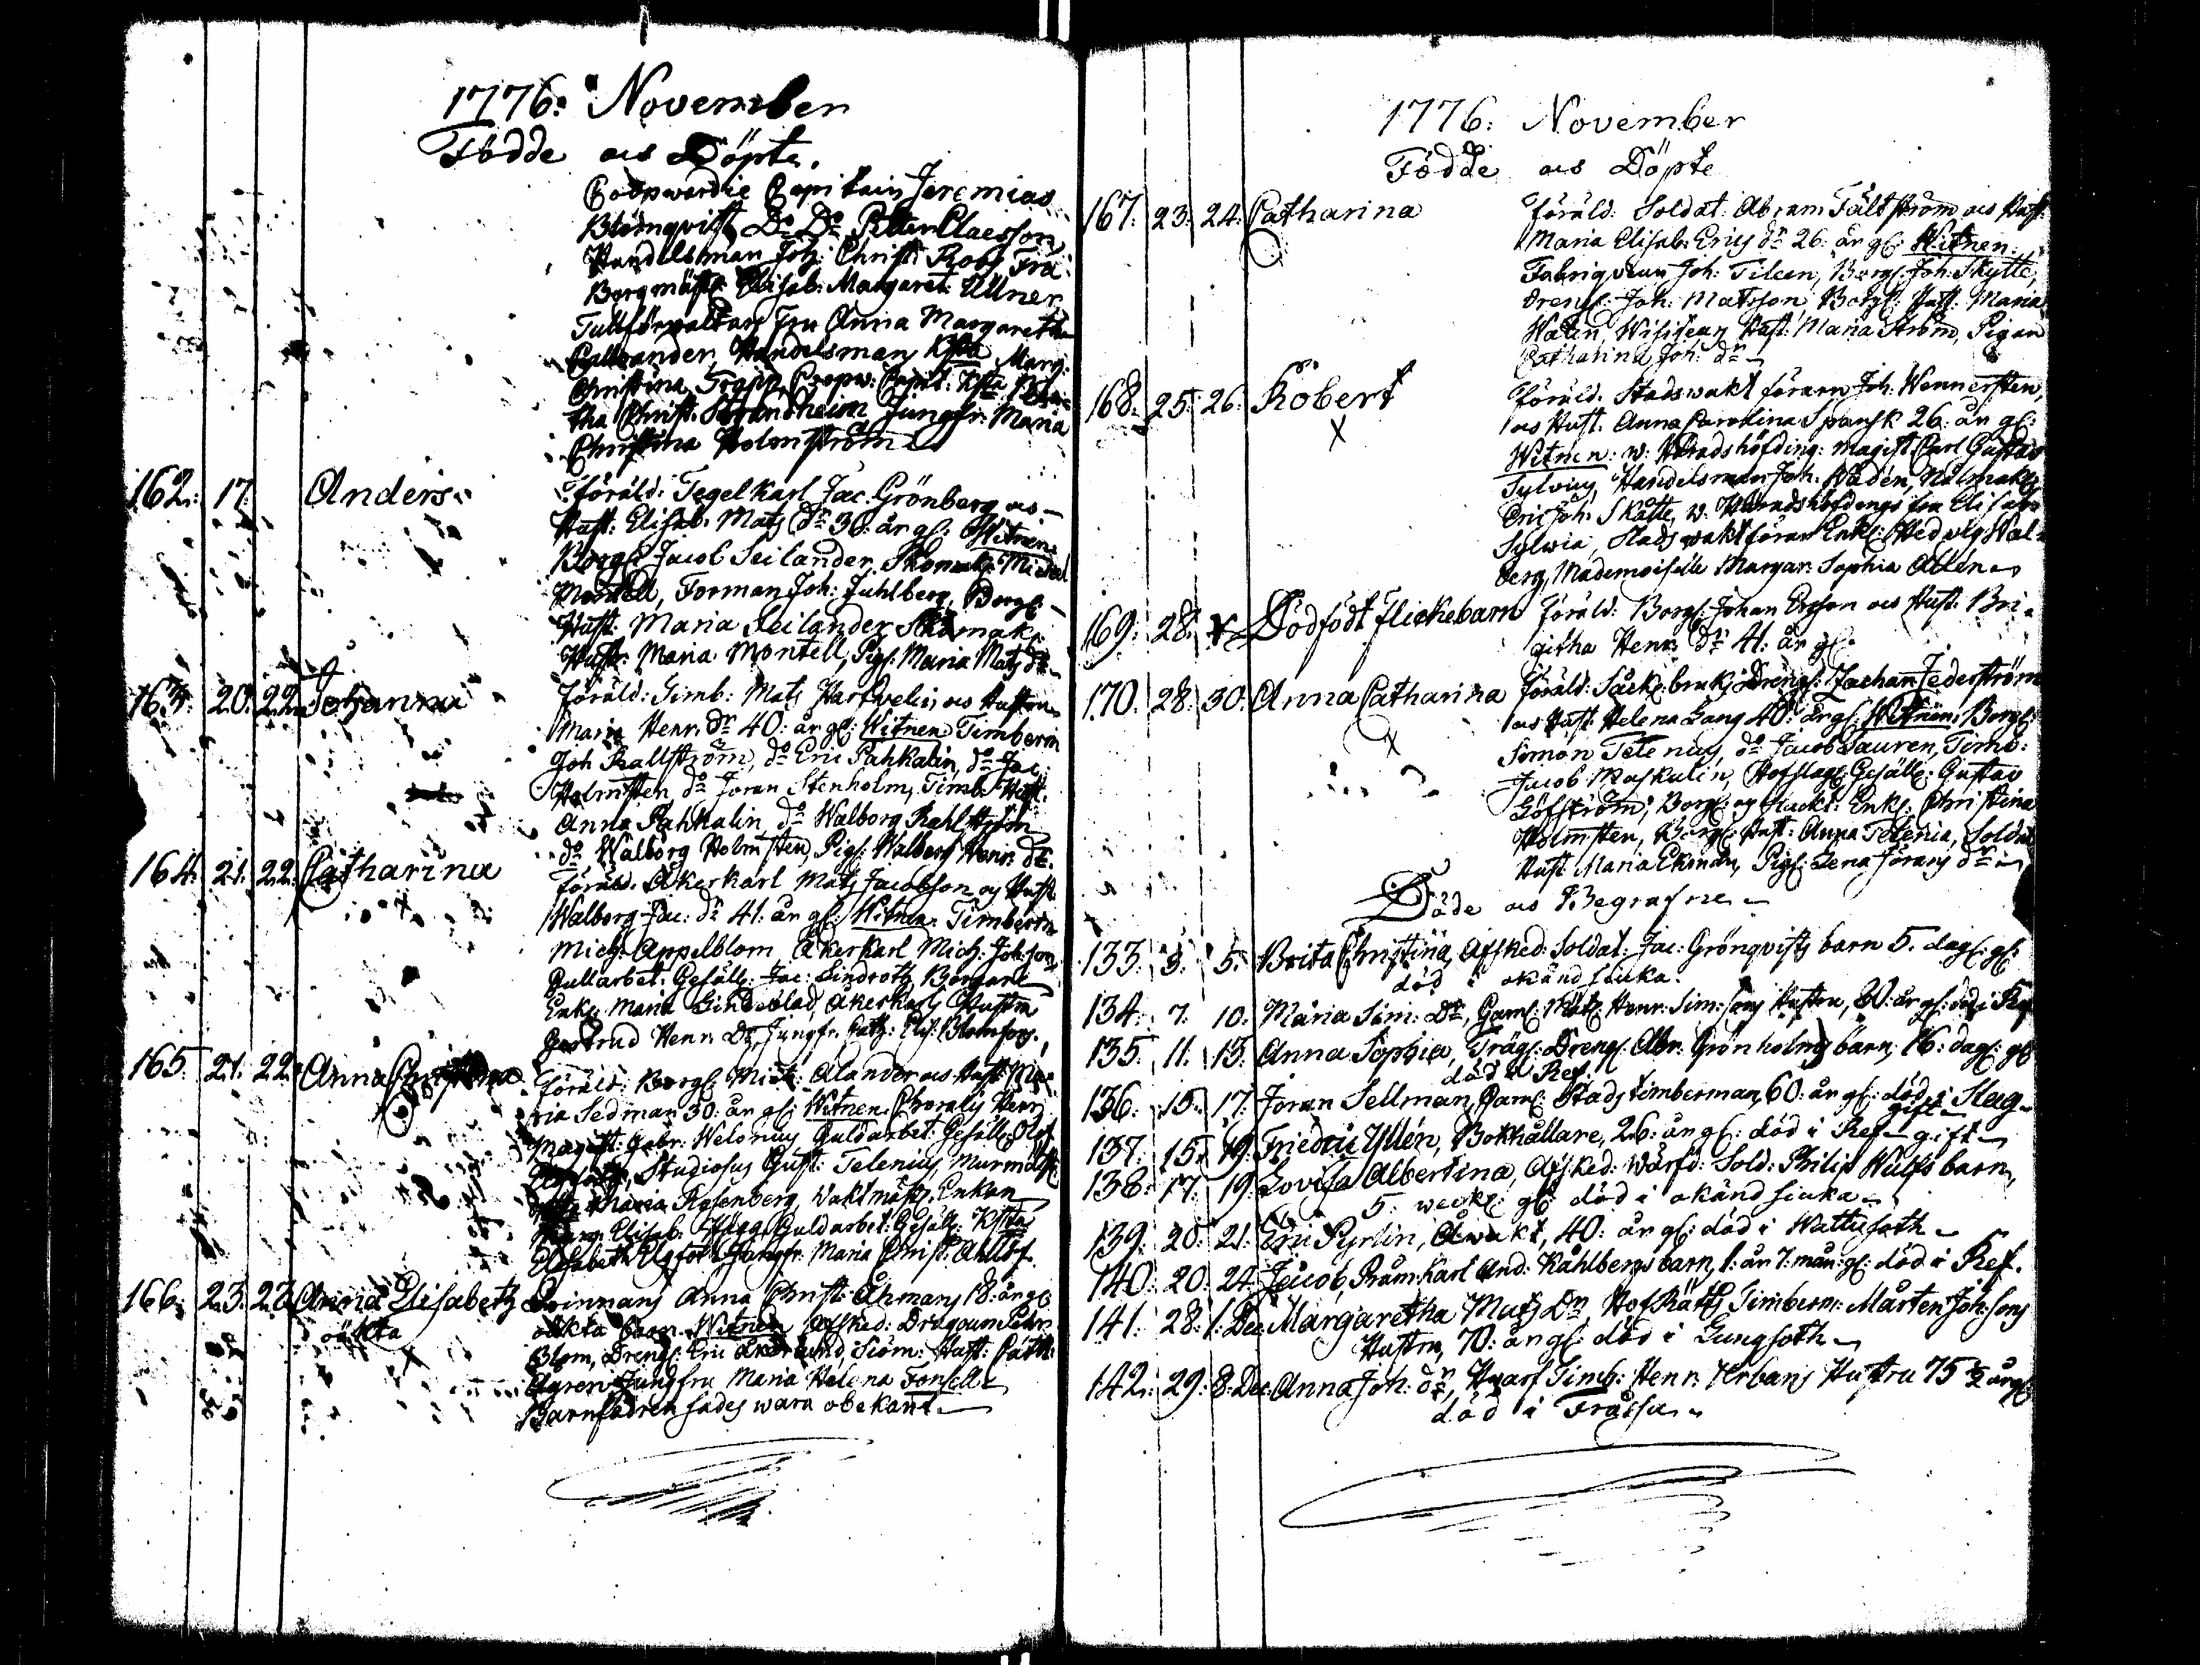 1776: November
Födde ocs Döpte.
Coopwardie Capitain Jeremias
Björnqvist, Do Do Petter Claesson
Handelsman Joh: Christ: Fru
Borgmäst: Elisab: Margaret: Ullner
Tullförvaltar Fru Anna Margaretha
Handelsmans Marg:
Christina Coopw: Capit:
tha Christ: Jungfr: Maria
Christina Holmström
162. 17. Anders. Föräld: Tegelkarl Jac: Grönberg ocs
Hust: Elisab: Mats dr 30: år gl: Witnen
Borg: Jacob Seilander, Skomak: Michel
Montell, Forman Joh: Juhlberg, Borg:
Hust: Maria Seilander Skomak:
Hustr: Maria Montell, Pig: Maria Mats dr
163. 20. 22. Johanna Föräld: Timb: Mats ocs Hustrun
Maria Henr: dr 40: år gl: Witnen Timberm
Joh Rallström, do Eric Pahkalin, do Jac:
Holmsten do Joran Stenholm, Timb: Hust:
Anna Pahkalin, do Walborg Rahlström
do Walborg Holmsten, Pig: Walborg Henr: dr
164. 21. 22. Catharina Föräld. Åkerkarl Mats Jacobson og Hust
Walborg Jac: dr 41: år gl: Witnen. Timberm
Mich: Appelblom, Åkerkarl Mich: Johson,
Gullarbet: Gesäll: Jac: Lindroth, Borgare
Enk: Maria Lindeblad, Åkerkarls Hustru
Gertrud Henr: Dr, Jungfr: Cath: Elis: Blomfors.
165. 21. 22. Anna Christina Föräld: Borg: Mich: Alander ocs Hust: Ma
ria Sedman 30: år gl: Witnen. Herr
Magist: Gabr: Welonius Guldarbet: Gesäll: Olof
Elgfoth, Studiosus Gust: Telenius, Murmäst:
Maria Rosenberg, Waktmäst: Enkan
Elisab: Hägg, Guldarbet: Gesäll:
Elisabeth Elgfoth, Jungfr: Maria Christ: Ahllöf
166. 23. 23. Anna Elisabeth Qvinnans Anna Christ: Åhmans 18: år gl:
oäkta oäkta barn. Witnen Afsked: Dragoun Petter
Blom, Dreng: Eric Åkerlund, Siöm: Hust: Cath:
Ågren Jungfru Maria Helena Fonsell
Barnfadren sades wara obekant.
1776: November
Födde ocs Döpte
167. 23. 24. Catharina Föräld: Soldat: Abram Fältström ocs Hust:
Maria Elisab: Erics dr 26: år gl: Witnen:
Fabriqueur Joh: Tileen, Borg: Joh: Skytte,
Dreng: Joh: Matsson, Borg: Hust: Maria
Walin, Wisiteur Hust: Maria Ström, Pigan
Catharina Joh: dr
168. 25. 26. Robert Föräld. Stadswakt föraren Joh: Wennersten,
ocs Hust: Anna Carolina Spansk 26: år gl:
Witnen: w: Häradshöfding: Magist: Carl Gustav
Sylvius, Handelsman Joh: Wadén, Nålmak:
Eric Joh: Skatte, w: Häradshöfdings fru Elisab:
Sylwia, Stads waktförar Enk: Hedvig Wal=
berg, Mademoiselle Margar: Sophia Ahlén
169. 28. Dödfödt flickebarn Föräld: Borg: Johan Ersson ocs Hust: Bri=
githa Henr: dr: 41: år gl:
170. 28. 30. Anna Catharina Föräld: Såck: bruks Dreng: Zachar: Federström
ocs Hust: Helena Lang 40: år gl: Witnen: Borg:
Simon Telenius, do Jacob Lauren, Timb:
Jacob Maskulin, Hofslag: Gesäll: Gustav
Löfström, Borg: Enk: Christina
Holmsten, Borg: Hust: Anna Telenia, Soldat
Hust Maria Ekman, Pig: Lena Jörans dr
Döde ocs Begrafne
133. 3. 5. Brita Christina, Afsked: Soldat: Jac: Grönqvists barn 5. dag: gl:
död i okänd siuka.
134. 7. 10. Maria Sim: Dr, Gaml: Mats Henr: Sim:sons Hustru, 80: år gl: död i Ref
135. 11. 13. Anna Sophia, Trägs: Dreng: Abr: Grönholms barn, 16: dag: gl:
död i Ref.
136. 15. 17. Joran Sellman, Gaml: Stads timberman, 60: år gl: död i Slag
gift
137. 15. 19. Friedric Ullén, Bokhållare, 26: år gl: död i Ref. gift
138. 17. 19. Lovisa Albertina, Afsked: Wärfd: Sold: Philip Wulfs barn,
5. weck: gl: död i okänd siuka
139. 20. 21. Eric Pyrlin, Åwakt, 40: år gl: död i Wattusoth
140. 20. 24. Jacob, Pråmkarl And: Kåhlbergs barn, 1: år 7: mån: gl: död i Ref.
141. 28. 1. Dec. Margaretha Mats Dr, Hofrätts Timberm: Mårten Joh:sons
Hustru, 70: år gl: död i Lungsoth
142. 29. 8. Dec. Anna Joh: dr, Hwarf Timb: Henr: Urbans Hustru 75 1/2 år gl:
död i Fråssa